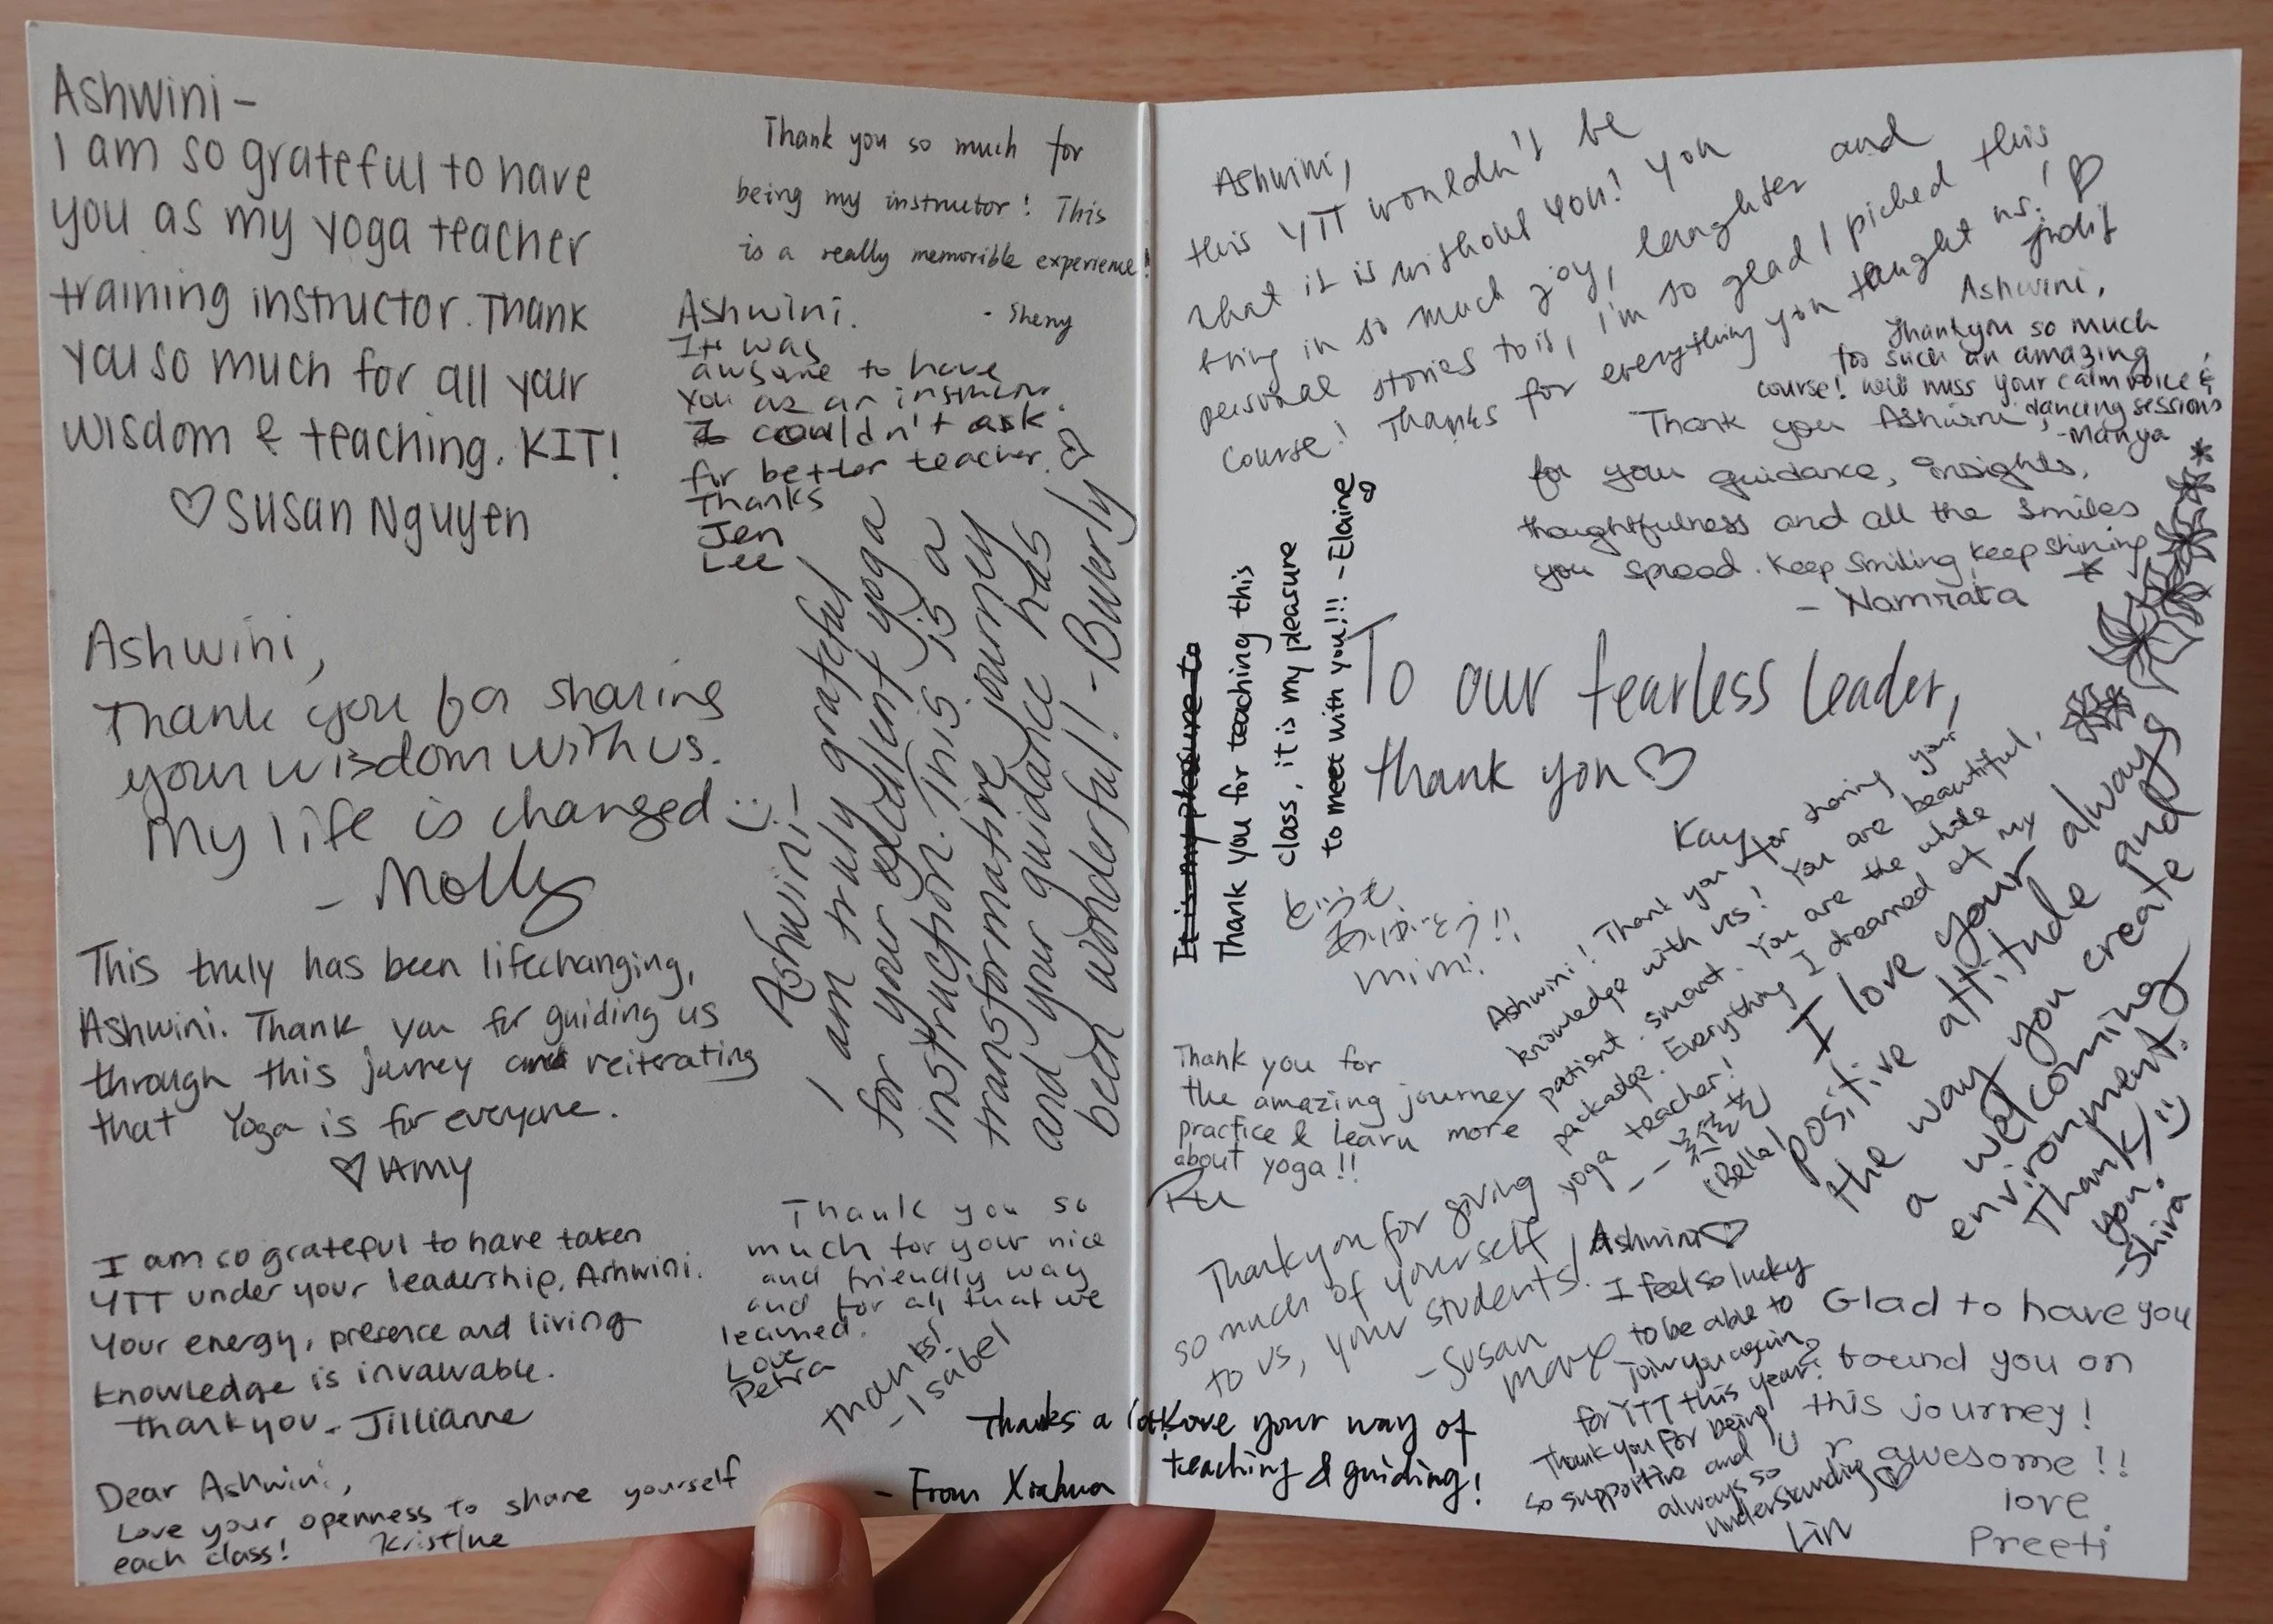 Ashwini -
I am so grateful to have
you as my yoga teacher
training instructor. Thank
you so much for all your
wisdom & teaching. KIT!
♡ Susan Nguyen
Thank you so much for
being my instructor! This
is a really memorible experience!
- Sheny
Ashwini.
It was
awsome to have
you as an instructor.
I couldn't ask
for better teacher.
Thanks
Jen
Lee
Ashwini,
Thank you for sharing
your wisdom with us.
My life is changed :)
- Molly
Ashwini -
I am truly grateful
for your excellent yoga
instruction. This is a
transformative journey
and your guidance has
been wonderful! - Buverly ♡
This truly has been lifechanging,
Ashwini. Thank you for guiding us
through this journey and reiterating
that Yoga is for everyone.
♡ Amy
I am so grateful to have taken
YTT under your leadership, Ashwini.
Your energy, presence and living
knowledge is invaluable.
Thank you - Jillianne
Thank you so
much for your nice
and friendly way
and for all that we
learned.
Love
Petra
Thanks!
- Isabel
Dear Ashwini,
Love your openness to share yourself
each class! Kristine
Thanks a lot! Love your way of
teaching & guiding!
- From Xiahua
Ashwini,
this YTT wouldn't be
what it is without you! You
bring in so much joy, laughter and
personal stories to it, I'm so glad I picked this
course! Thanks for everything you taught us! ♡
Judit
Ashwini,
Thankyou so much
for such an amazing
course! Will miss your calm voice &
dancing sessions
- Manya
Thank you Ashwini
for your guidance, insights,
thoughtfulness and all the smiles
you spread. Keep smiling keep shining
- Namrata
It is my pleasure to
Thank you for teaching this
class, it is my pleasure
to meet with you!!! - Elaine ♡
To our fearless leader,
thank you ♡
Kay
どうも
ありがとう!!
mimi
Ashwini! Thank you for sharing your
knowledge with us! You are beautiful,
patient, smart. You are the whole
package. Everything I dreamed of my
yoga teacher!
(Bella)
I love your always
positive attitude and
the way you create
a welcoming
environment.
Thank
you. :)
- Shira
Thank you for
the amazing journey
practice & learn more
about yoga!!
Thank you for giving
so much of yourself
to us, your students!
- Susan
Marx
Ashwini ♡
I feel so lucky
to be able to
join you again
for YTT this year!
Thank you for being
so supportive and
always so
understanding ♡
Lin
Glad to have you
found you on
this journey!
r awesome!!
love
Preeti